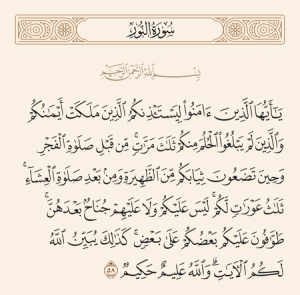 سُورَةُ النُّورِ
بِسْمِ اللَّهِ الرَّحْمَٰنِ الرَّحِيمِ
يَٰٓأَيُّهَا ٱلَّذِينَ ءَامَنُوا۟ لِيَسْتَـْٔذِنكُمُ ٱلَّذِينَ مَلَكَتْ أَيْمَٰنُكُمْ
وَٱلَّذِينَ لَمْ يَبْلُغُوا۟ ٱلْحُلُمَ مِنكُمْ ثَلَٰثَ مَرَّٰتٍ ۚ مِّن قَبْلِ صَلَوٰةِ ٱلْفَجْرِ
وَحِينَ تَضَعُونَ ثِيَابَكُم مِّنَ ٱلظَّهِيرَةِ وَمِنۢ بَعْدِ صَلَوٰةِ ٱلْعِشَآءِ ۚ
ثَلَٰثُ عَوْرَٰتٍ لَّكُمْ ۚ لَيْسَ عَلَيْكُمْ وَلَا عَلَيْهِمْ جُنَاحٌۢ بَعْدَهُنَّ ۚ
طَوَّٰفُونَ عَلَيْكُم بَعْضُكُمْ عَلَىٰ بَعْضٍ ۚ كَذَٰلِكَ يُبَيِّنُ ٱللَّهُ
لَكُمُ ٱلْءَايَٰتِ ۗ وَٱللَّهُ عَلِيمٌ حَكِيمٌ ٥٨